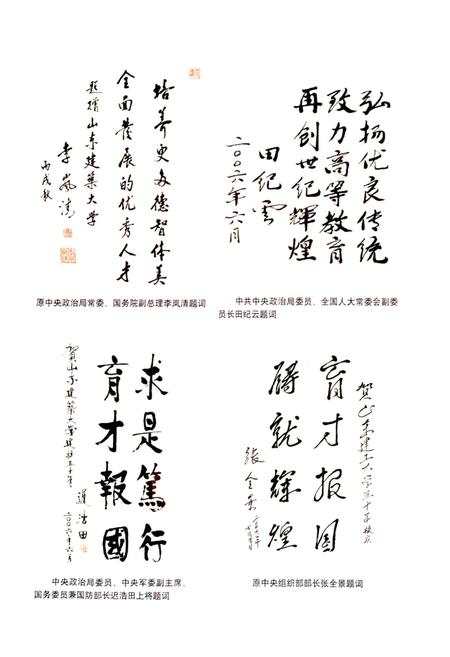 培养更多德智体美
全面发展的优秀人才
题赠山东建筑大学
李岚清
丙戌秋
原中央政治局常委、国务院副总理李岚清题词
弘扬优良传统
致力高等教育
再创世纪辉煌
田纪云
二〇〇六年六月
中共中央政治局委员、全国人大常委会副委
员长田纪云题词
求是篤行
育才報國
贺山东建筑大学建校五十年
迟浩田
二〇〇六年六月
中央政治局委员、中央军委副主席、
国务委员兼国防部长迟浩田上将题词
贺山东建工大学五十年校庆
育才报国
铸就辉煌
张全景
原中央组织部部长张全景题词